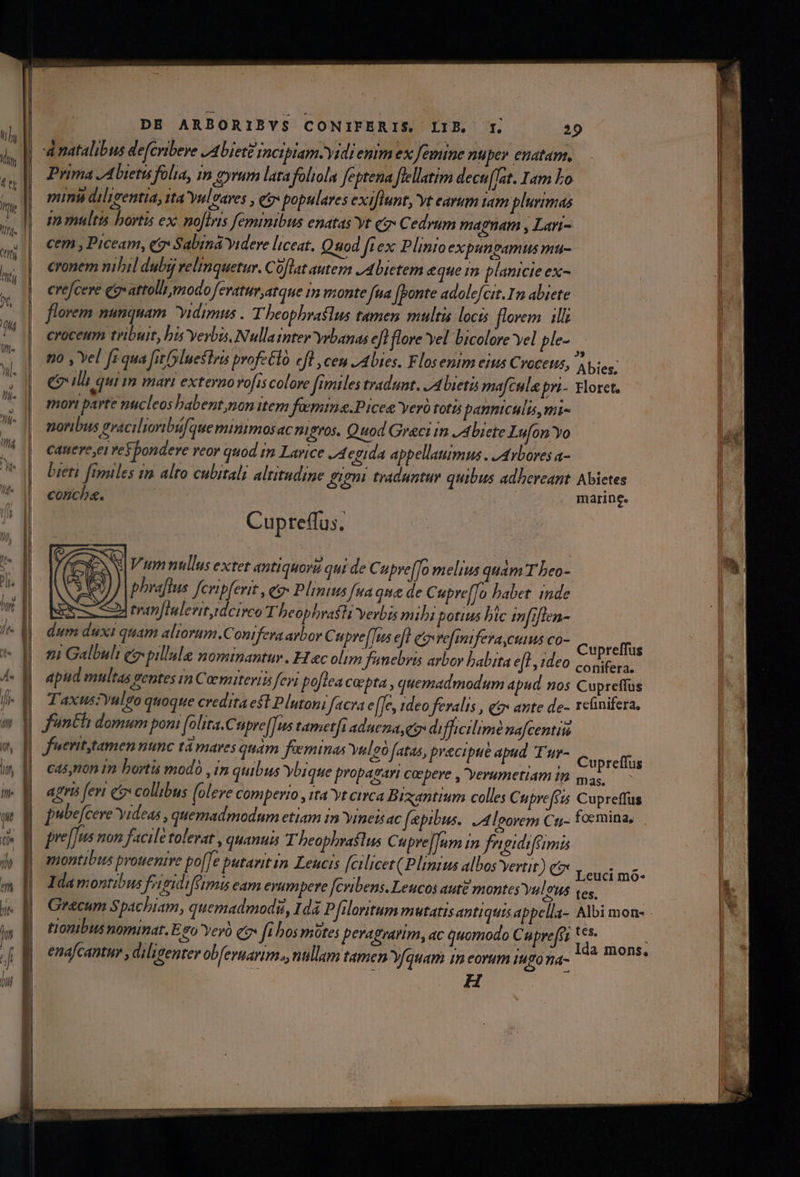 DE ARBORIBVS CONIFERIS. LIB. I. 29
à natalibus describere Abietē incipiam. vidi enim ex semine nuper enatam,
Prima Abietis folia, in gyrum lata foliola septena stellatim decussat. Iam ho
minū diligentia, ita vulgares, & populares existunt, vt earum iam plurimas
in multis hortis ex nostris seminibus enatas vt & Cedrum magnam, Lari-
cem, Piceam, & Sabinā videre liceat. Quod si ex Plinio expungamus mu-
cronem nihil dubij relinquetur. Cōstat autem Abietem æque in planicie ex-
crescere & attolli, modo feratur, atque in monte sua sponte adolescit. In abiete
florem nunquam vidimus. Theophrastus tamen multis locis florem illi
croceum tribuit, his verbis, Nulla inter vrbanas est flore vel bicolore vel ple-
no, vel si qua sit syluestris profectò est, ceu Abies. Flos enim eius Croceus,
& illi qui in mari externo rosis colore similes tradunt. Abietis mascula pri-
mori parte nucleos habent, non item fœminæ. Piceæ verò totis panniculis, mi-
noribus gracilioribusque minimos ac nigros. Quod Græci in Abiete Luson vo
cauere, ei respondere reor quod in Larice Aegida appellauimus. Arbores a-
bieti similes in alto cubitali altitudine gigni traduntur quibus adhereant
conchæ.
Abies.
Floret.
Abietes
marinę.
Cupressus.
Cum nullus extet antiquorū qui de Cupresso melius quàm Theo-
phrastus scripserit, & Plinius sua quæ de Cupresso habet inde
transtulerit, idcirco Theophrasti verbis mihi potius hîc insisten-
dum duxi quam aliorum. Conifera arbor Cupressus est & resinifera, cuius co-
ni Galbuli & pillulæ nominantur. Hæc olim funebris arbor habita est, ideo
apud multas gentes in Cœmiteriis seri postea cœpta, quemadmodum apud nos
Taxus: vulgo quoque credita est Plutoni sacra esse, ideo feralis, & ante de-
functi domum poni solita. Cupressus tametsi aduena, & difficilimè nascentiū
fuerit, tamen nunc tā mares quàm fœminas vulgò satas, præcipuè apud Tur-
cas, non in hortis modò, in quibus vbique propagari cœpere, verumetiam in
agris seri & collibus solere comperio, ita vt circa Bizantium colles Cupressis
pubescere videas, quemadmodum etiam in vineis ac sæpibus. Algorem Cu-
pressus non facilè tolerat, quanuis Theophrastus Cupressum in frigidissimis
montibus prouenire posse putarit in Leucis scilicet (Plinius albos vertit) &
Ida montibus frigidissimis eam erumpere scribens. Leucos autē montes vulgus
Græcum Spachiam, quemadmodū, Idā Psiloritum mutatis antiquis appella-
tionibus nominat. Ego verò & si hos mōtes peragrarim, ac quomodo Cupressi
enascantur, diligenter obseruarim, nullam tamen vsquam in eorum iugo na-
H
Cupressus
conifera.
Cupressus
resinifera.
Cupressus
mas.
Cupressus
foemina.
Leuci mō-
tes.
Albi mon-
tes.
Ida mons.